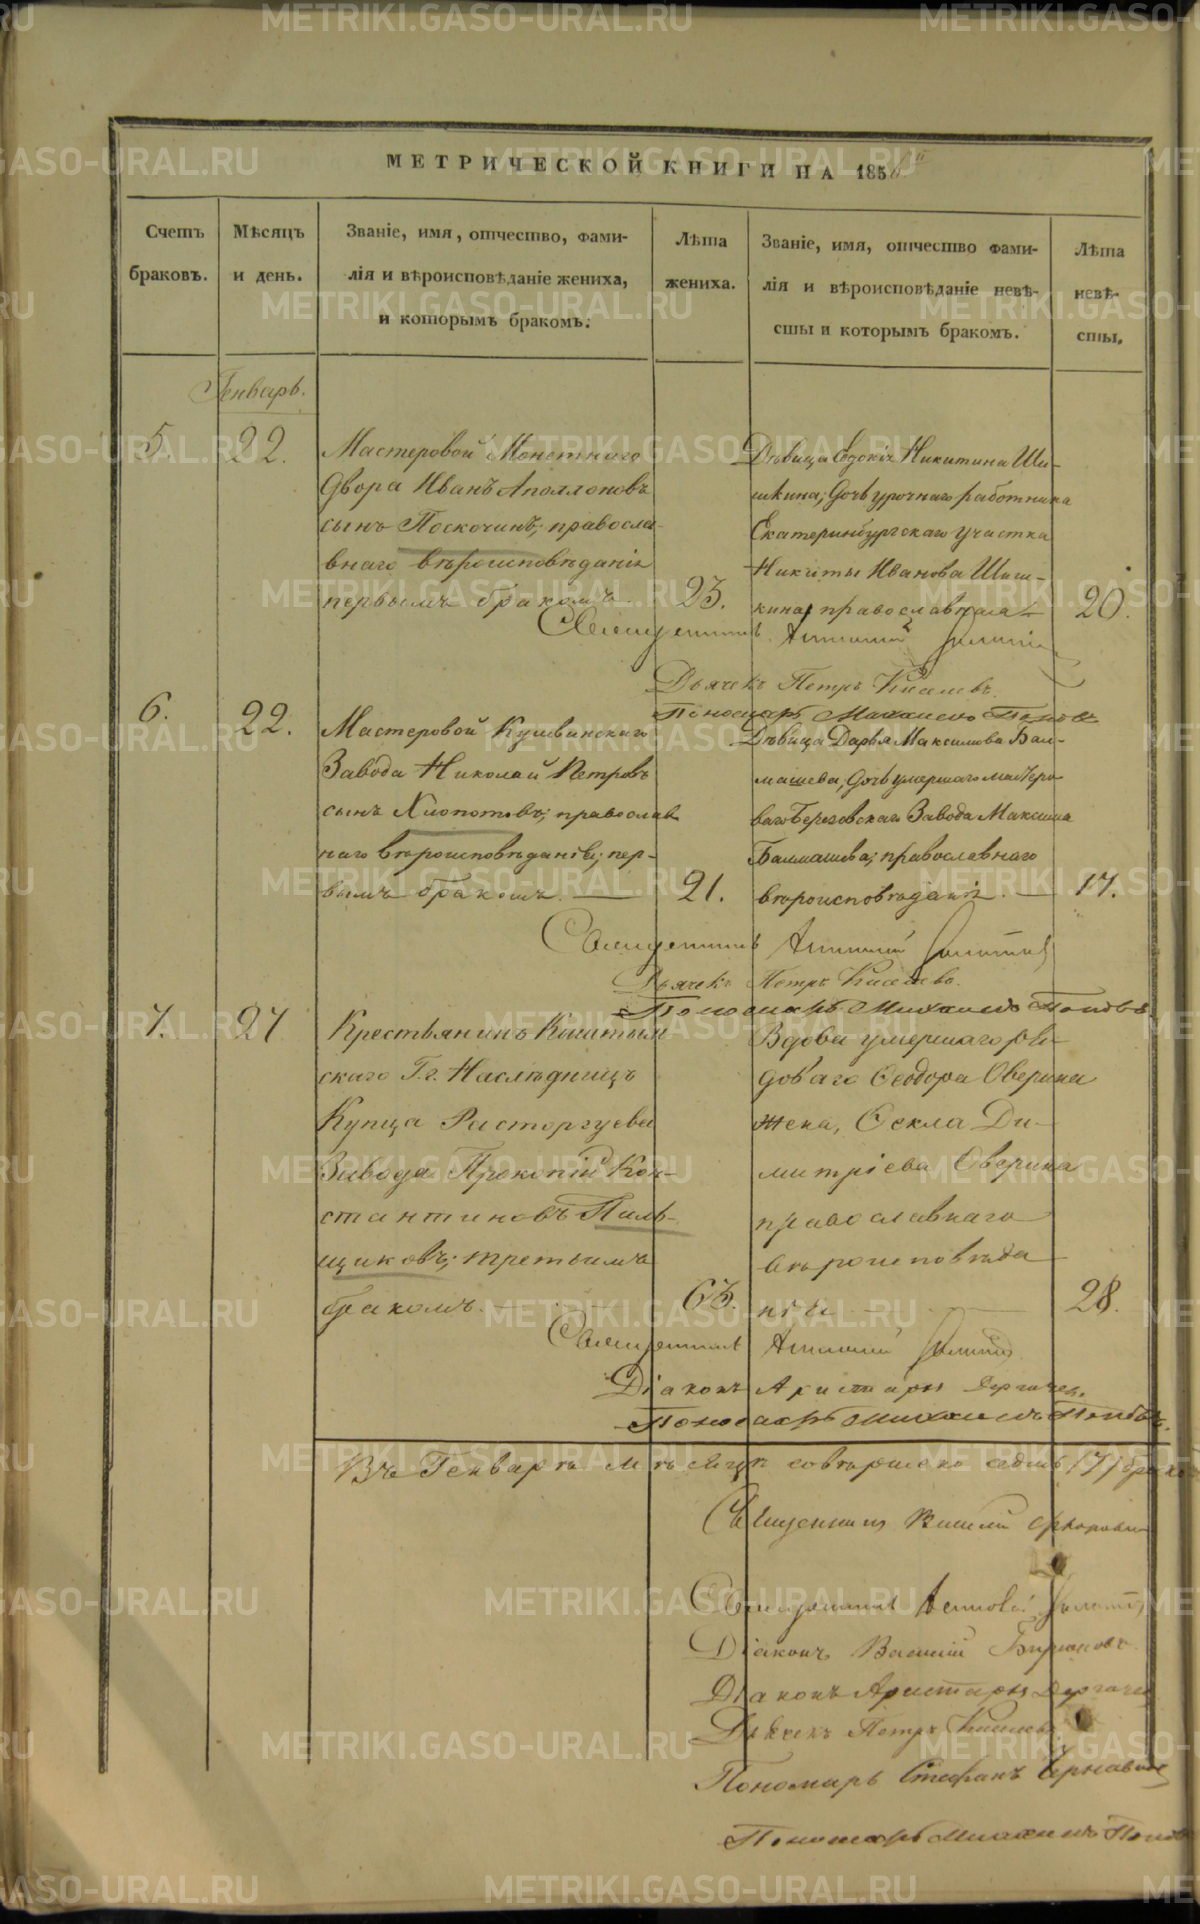 МЕТРИЧЕСКОЙ КНИГИ НА 1856й
Счетъ браковъ.
Мѣсяцъ и день.
Званіе, имя, отчество, фами-
лія и вѣроисповѣданіе жениха,
и которымъ бракомъ.
Лѣта жениха.
Званіе, имя, отчество фами-
лія и вѣроисповѣданіе невѣ-
сты и которымъ бракомъ.
Лѣта невѣ-
сты.
Генварь.
5.
22.
Мастеровой Монетнаго
Двора Иванъ Аполлоновъ
сынъ Поскочинъ; правосла-
внаго вѣроисповѣданія
первымъ бракомъ.
23.
Дѣвица Евдокія Никитина Ши-
шкина; дочь урочнаго работника
Екатеринбургскаго участка
Никиты Иванова Шиш-
кина, православная
20.
Священникъ
Дьячекъ Петръ Киселевъ.
Пономарь Михаилъ Поповъ
6.
22.
Мастеровой Кушвинскаго
Завода Николай Петровъ
сынъ Хлопотовъ; православ
наго вѣроисповѣданія; пер-
вымъ бракомъ.
21.
Дѣвица Дарья Максимова Бал-
машева, дочь умершаго мастеро-
ваго Березовскаго Завода Максима
Балмашева; православнаго
вѣроисповѣданія.
17.
Священникъ
Дьячекъ Петръ Киселевъ.
Пономарь Михаилъ Поповъ
7.
27
Крестьянинъ Кыштым
скаго Г.г. Наслѣдницъ
Купца Расторгуева
Завода Прокопій Кон-
стантиновъ Пиль-
щиковъ; третьимъ
бракомъ.
63.
Вдова умершаго ря-
доваго Ѳеодора Оверина
жена, Ѳекла Ди-
митріева Оверина
православнаго
вѣроисповѣда
нія
28.
Священникъ
Діаконъ Аристархъ Дергачев.
Пономарь Михаилъ Поповъ.
Въ Генварѣ мѣсяцѣ совершено седмь /7/ брако
Священникъ Василій
Священникъ
Діаконъ Василій Бирюковъ.
Діаконъ Аристархъ Дергачев
Дьячекъ Петръ Киселевъ
Пономарь Стефанъ Чернавинъ
Пономарь Михаилъ Попов
METRIKI.GASO-URAL.RU